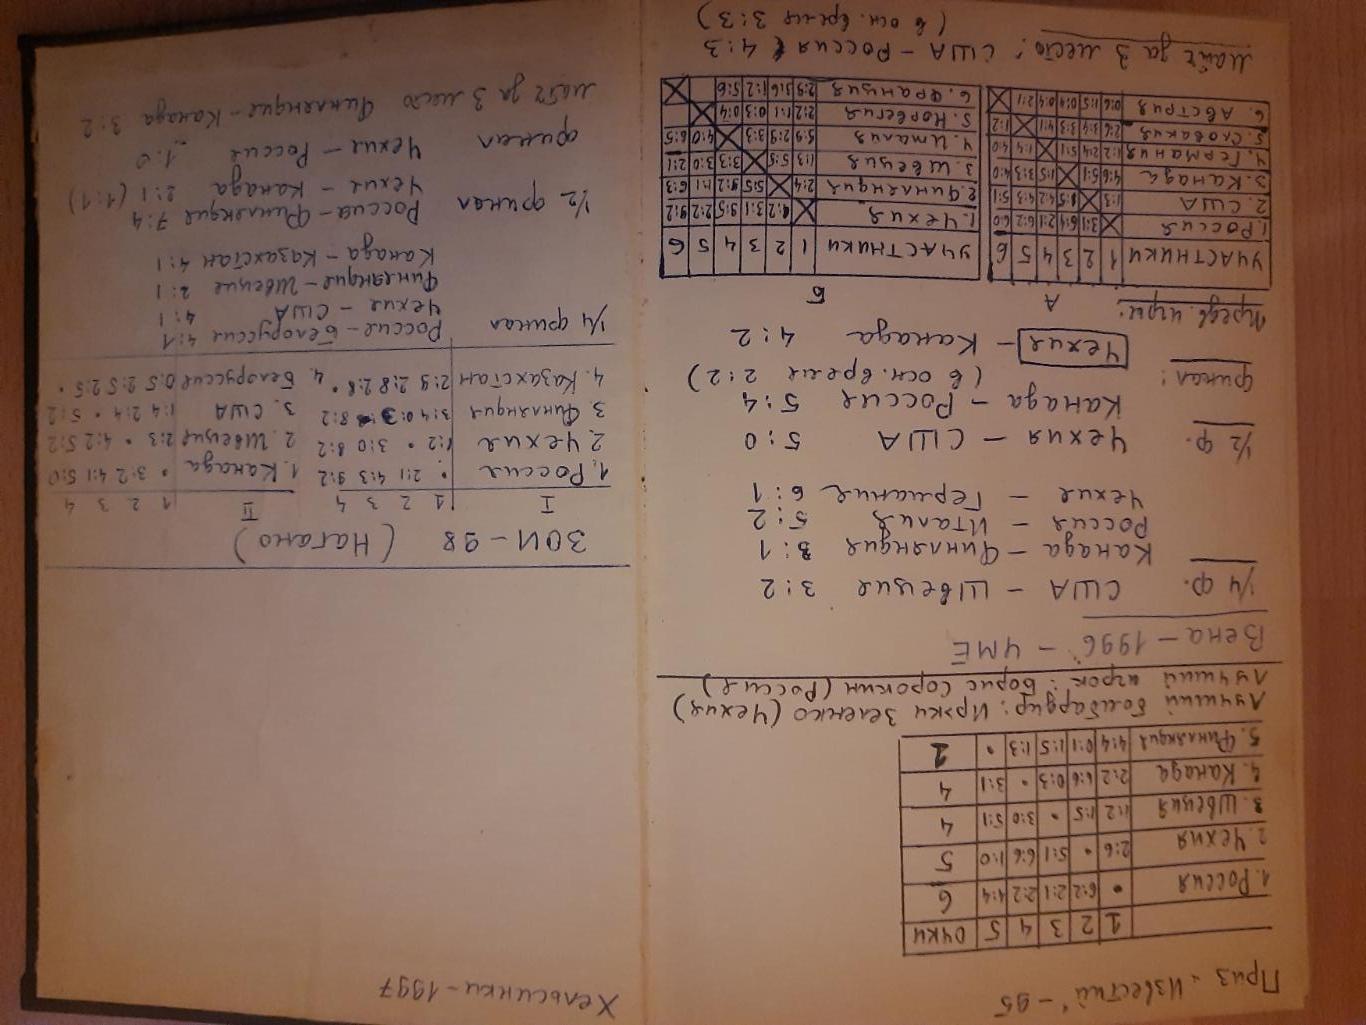 Приз „Известий“ - 95
1 2 3 4 5 очки
1. Россия • 6:2 2:1 2:2 4:4 6
2. Чехия 2:6 • 5:1 6:6 1:0 5
3. Швеция 1:2 1:5 • 3:0 5:1 4
4. Канада 2:2 6:6 0:3 • 3:1 4
5. Финляндия 4:4 0:1 1:5 1:3 • 1
Лучший бомбардир: Иржи Зеленко (Чехия)
Лучший игрок: Борис Сорокин (Россия)
Вена - 1996 - ЧМЕ
1/4 ф. США - Швеция 3:2
Канада - Финляндия 3:1
Россия - Италия 5:2
Чехия - Германия 6:1
1/2 ф. Чехия - США 5:0
Канада - Россия 5:4
(в осн. время 2:2)
Финал: Чехия - Канада 4:2
Предв. игры: А Б
УЧАСТНИКИ 1 2 3 4 5 6
1. Россия 3:1 6:4 2:1 6:2 6:0
2. США 1:3 1:5 4:2 4:3 5:1
3. Канада 4:6 5:1 1:5 3:3 4:0
4. Германия 1:2 2:4 5:1 1:4 4:0
5. Словакия 2:6 3:4 3:3 4:1 1:2
6. Австрия 0:6 1:5 0:4 0:4 2:1
УЧАСТНИКИ 1 2 3 4 5 6
1. Чехия 4:2 3:1 9:5 2:2 9:2
2. Финляндия 2:4 5:5 9:2 1:1 6:3
3. Швеция 1:3 5:5 3:3 3:0 2:1
4. Италия 5:9 2:9 3:3 4:0 6:5
5. Норвегия 2:2 1:1 0:3 0:4
6. Франция 2:9 3:6 1:2 5:6
Матч за 3 место: США - Россия 4:3
(в осн. время 3:3)
Хельсинки - 1997
ЗОИ - 98 (Нагано)
I 1 2 3 4 II 1 2 3 4
1. Россия • 2:1 4:3 9:2 1. Канада • 3:2 4:1 5:0
2. Чехия 1:2 • 3:0 8:2 2. Швеция 2:3 • 4:2 5:2
3. Финляндия 3:4 0:3 • 8:2 3. США 1:4 2:4 • 5:2
4. Казахстан 2:9 2:8 2:8 • 4. Белоруссия 0:5 2:5 2:5 •
1/4 финал Россия - Белоруссия 4:1
Чехия - США 4:1
Финляндия - Швеция 2:1
Канада - Казахстан 4:1
1/2 финал Россия - Финляндия 7:4
Чехия - Канада 2:1 (1:1)
финал Чехия - Россия 1:0
матч за 3 место Финляндия - Канада 3:2